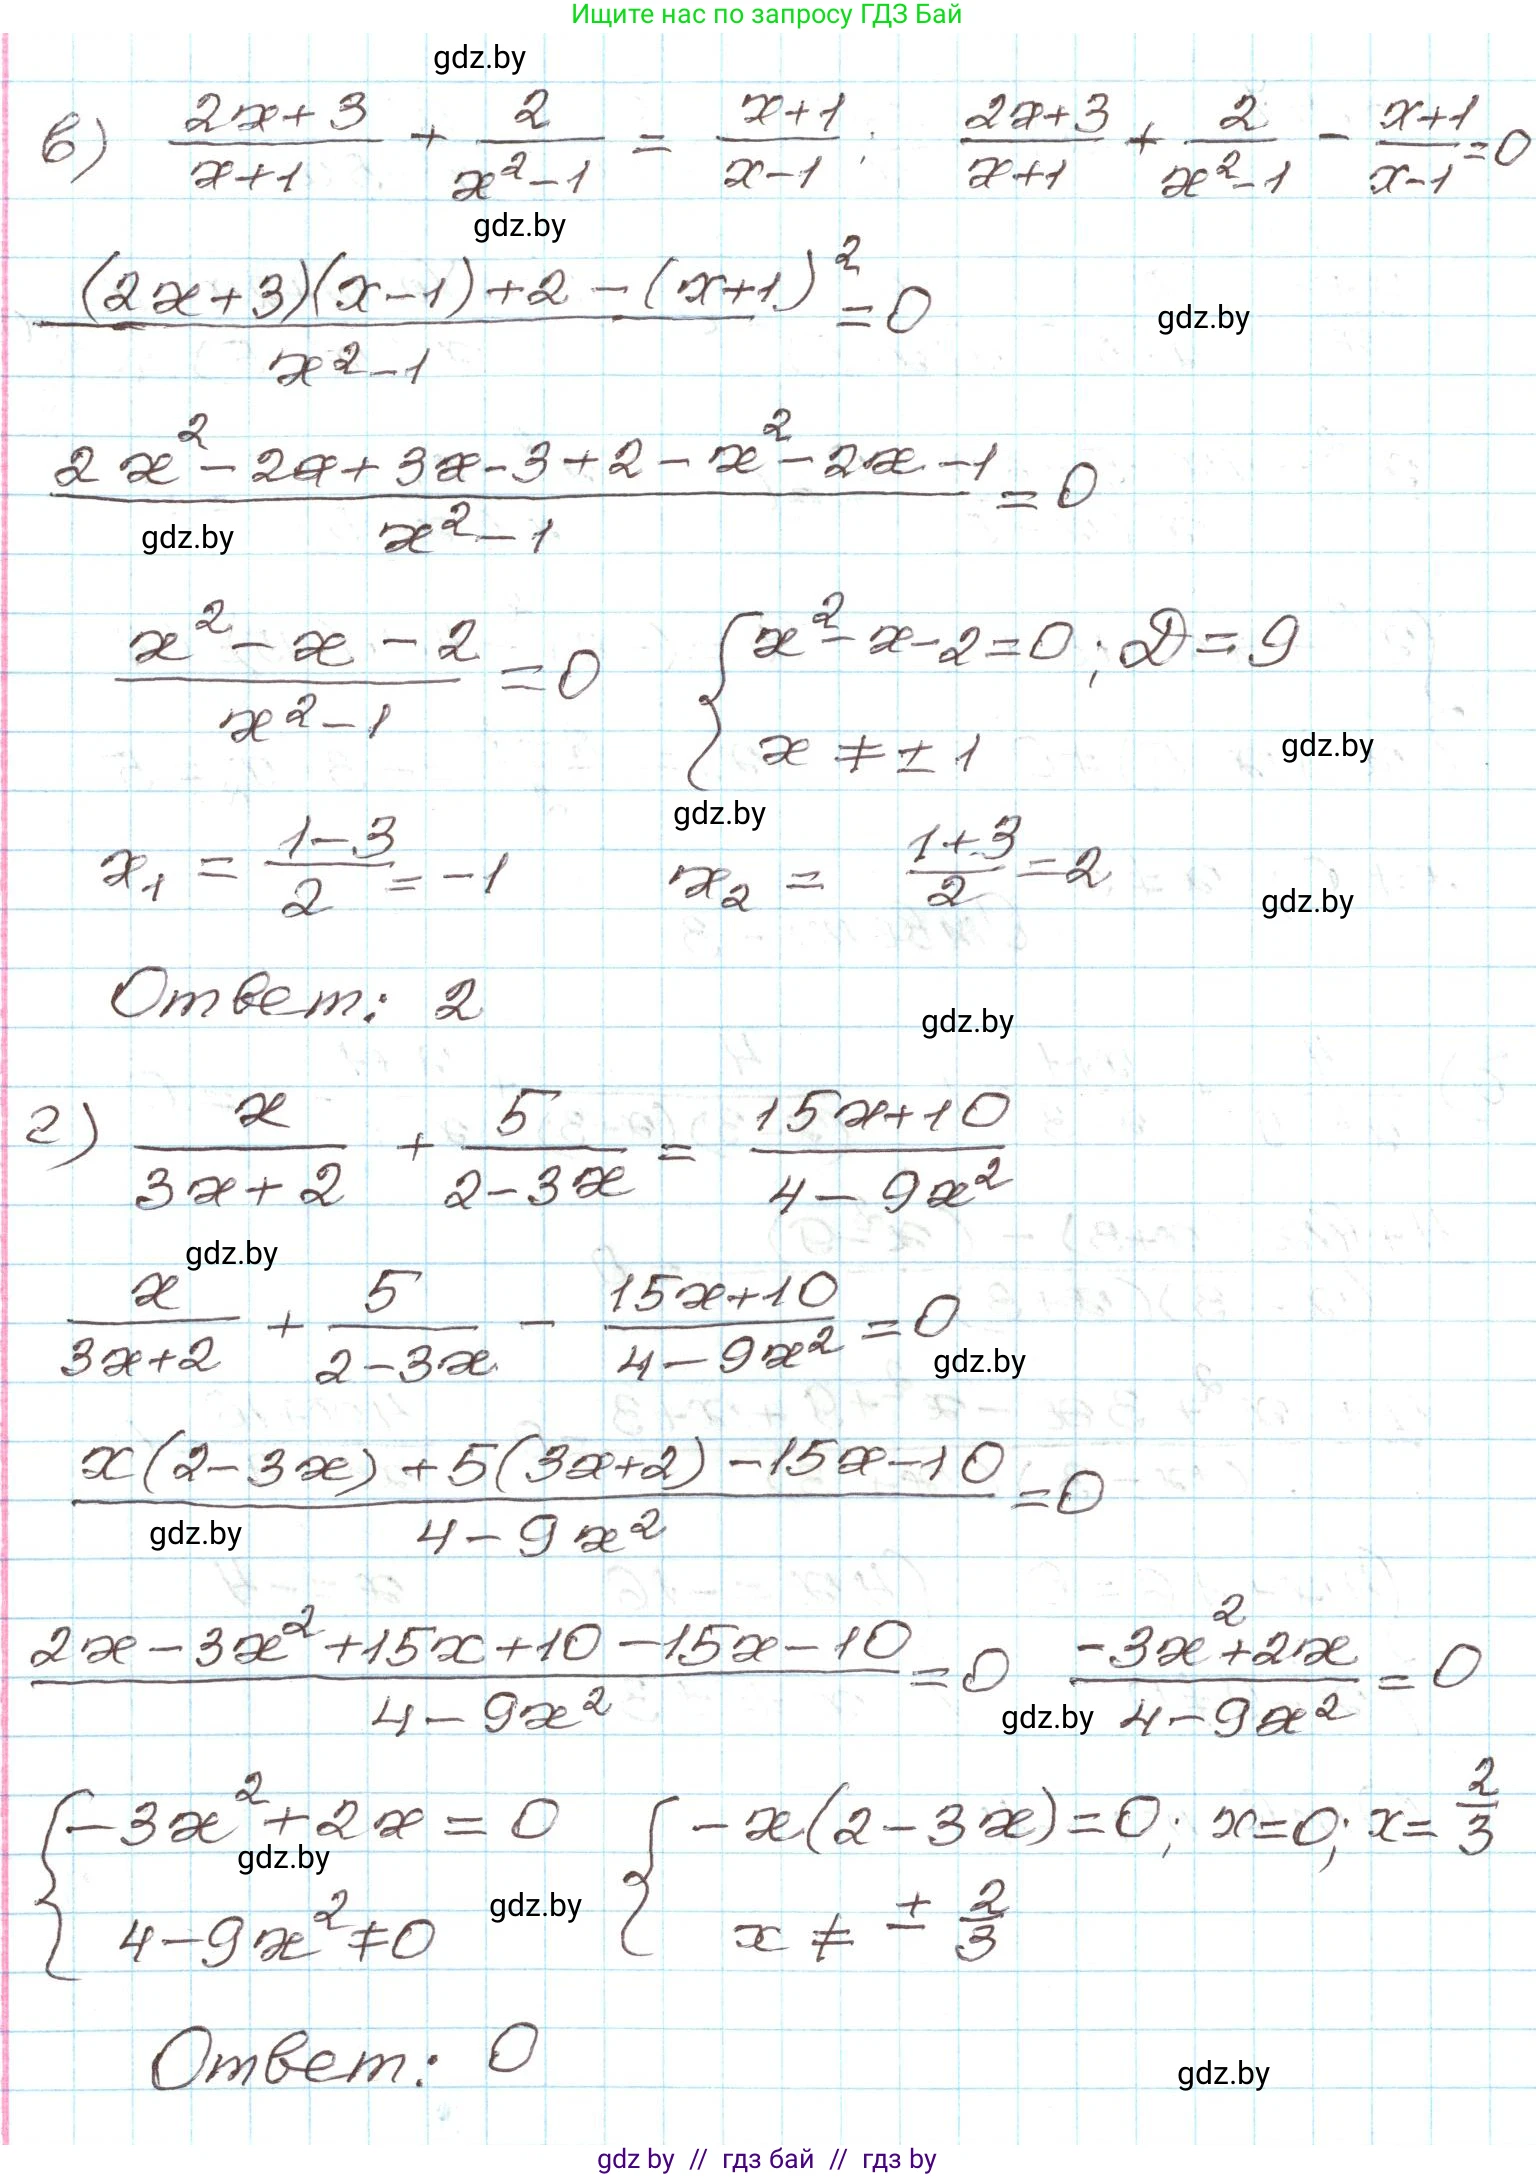 Ищите нас по запросу ГДЗ Бай
gdz.by
в) (2x+3)/(x+1) + 2/(x²-1) = (x+1)/(x-1); (2x+3)/(x+1) + 2/(x²-1) - (x+1)/(x-1) = 0
gdz.by
((2x+3)(x-1)+2-(x+1)²)/(x²-1) = 0
gdz.by
(2x²-2x+3x-3+2-x²-2x-1)/(x²-1) = 0
gdz.by
(x²-x-2)/(x²-1) = 0 { x²-x-2=0; D=9
x ≠ ±1
gdz.by
gdz.by
x₁ = (1-3)/2 = -1 x₂ = (1+3)/2 = 2
gdz.by
Ответ: 2
gdz.by
г) x/(3x+2) + 5/(2-3x) = (15x+10)/(4-9x²)
gdz.by
x/(3x+2) + 5/(2-3x) - (15x+10)/(4-9x²) = 0
gdz.by
(x(2-3x)+5(3x+2)-15x-10)/(4-9x²) = 0
gdz.by
(2x-3x²+15x+10-15x-10)/(4-9x²) = 0 (-3x²+2x)/(4-9x²) = 0
gdz.by
{ -3x²+2x=0 { -x(2-3x)=0; x=0; x=2/3
gdz.by
4-9x²≠0 x ≠ ± 2/3
gdz.by
Ответ: 0
gdz.by
gdz by // гдз бай // гдз by